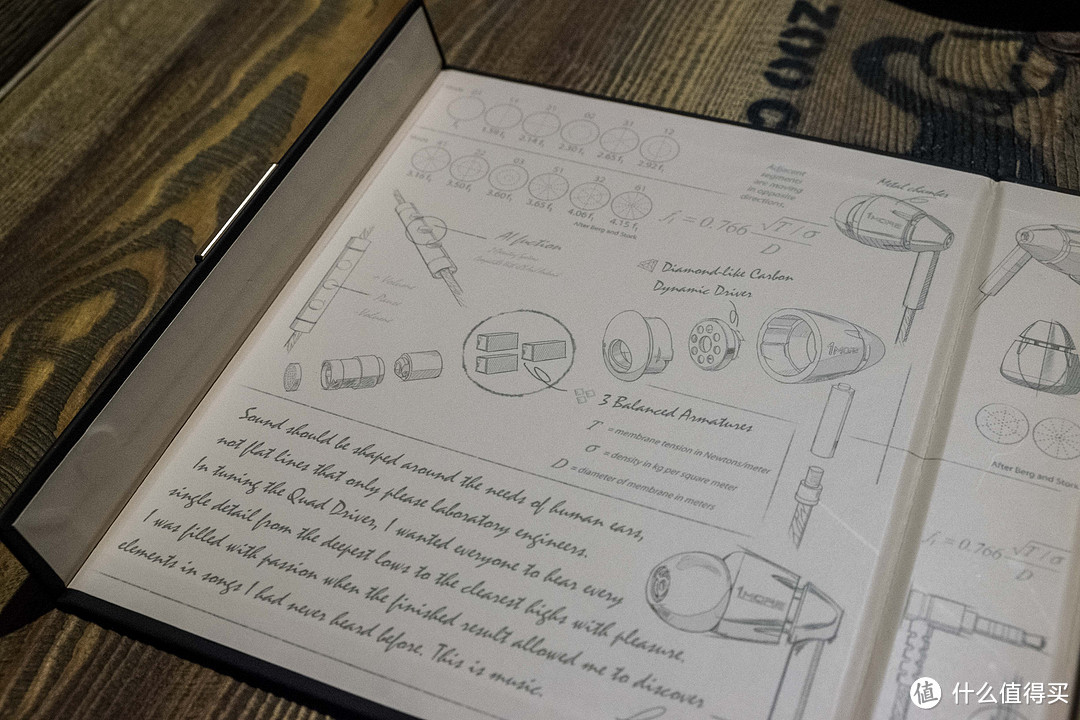 01 11 21 02 31 12
f₁ 1.59 f₁ 2.14 f₁ 2.30 f₁ 2.65 f₁ 2.92 f₁
41 22 03 51 32 61
3.16 f₁ 3.50 f₁ 3.60 f₁ 3.65 f₁ 4.06 f₁ 4.15 f₁
After Berg and Stork
Adjacent
segments
are moving
in opposite
directions.
Metal chamber
1MORE
f₁ = 0.766 √T / σ / D
+ Volume
Pause
- Volume
Diamond-like Carbon
Dynamic Driver
1MORE
3 Balanced Armatures
T = membrane tension in Newtons/meter
σ = density in kg per square meter
D = diameter of membrane in meters
Sound should be shaped around the needs of human ears,
not flat lines that only please laboratory engineers.
In tuning the Quad Driver, I wanted everyone to hear every
single detail from the deepest lows to the clearest highs with pleasure.
I was filled with passion when the finished result allowed me to discover
elements in songs I had never heard before. This is music.
1MORE
After Berg and Stork
f₁ = 0.766 √T / σ / D
值 什么值得买